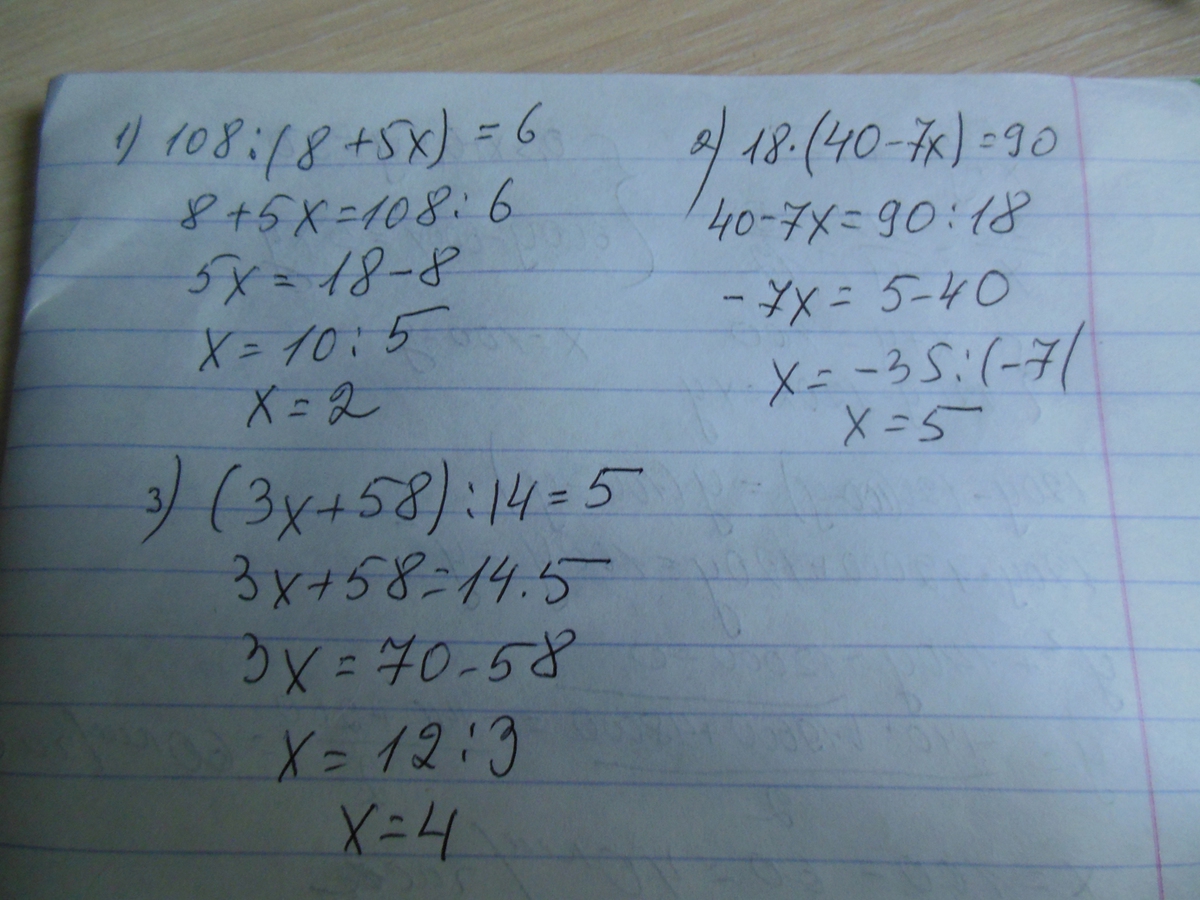 1) 108:(8+5x)=6
8+5x=108:6
5x=18-8
x=10:5
x=2
2) 18·(40-7x)=90
40-7x=90:18
-7x=5-40
x=-35:(-7(
x=5
3) (3x+58):14=5
3x+58=14.5
3x=70-58
x=12:3
x=4